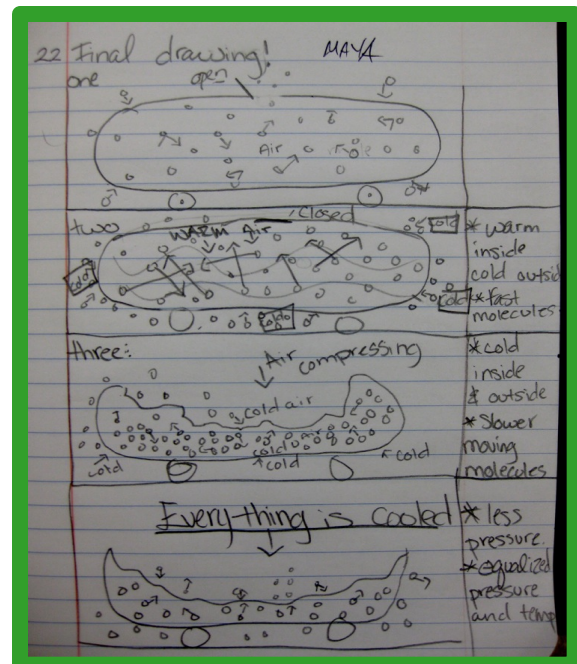 22 Final drawing! MAYA
one
open
Air
two
closed
WARM Air
cold
cold
cold
cold
* warm
inside
cold outside
* Fast
molecules
three:
Air
compressing
cold air
cold
cold
cold
cold
* cold
inside
& outside
* Slower
moving
molecules
Everything is cooled
* less
pressure.
* equalized
pressure
and temp